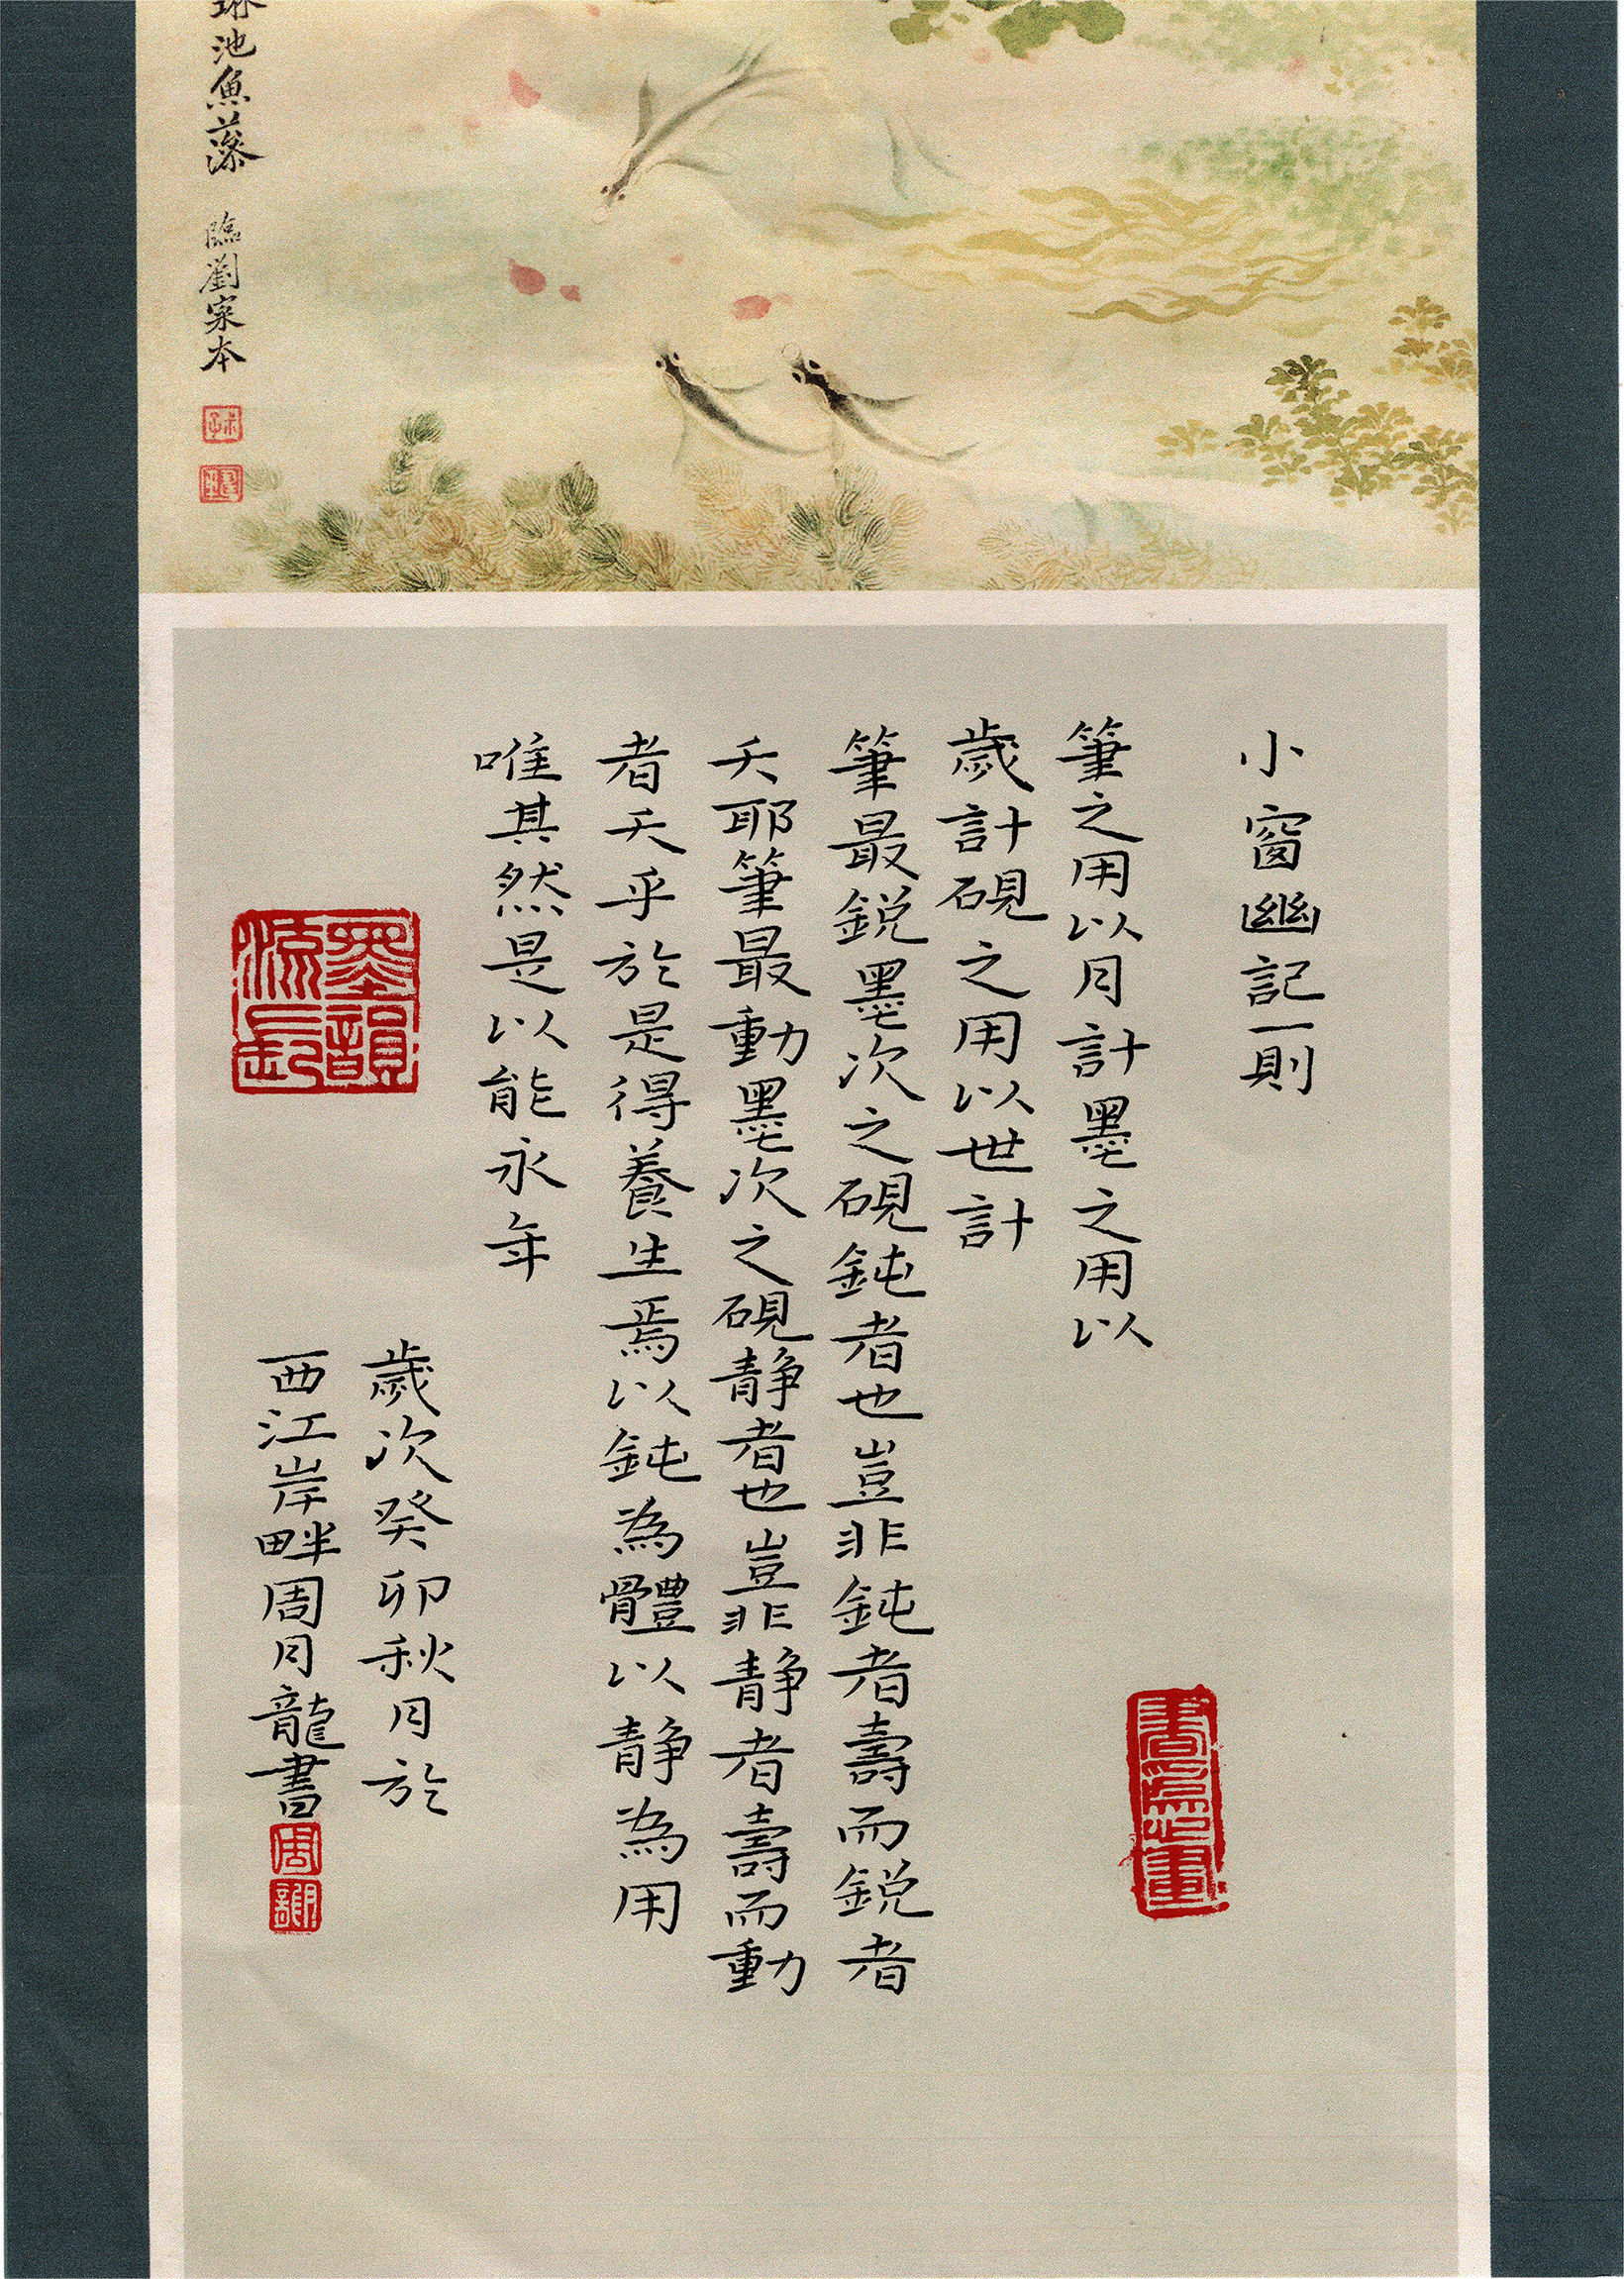 池魚藻 臨劉寀本
小窗幽記一則
筆之用以月計墨之用以
歲計硯之用以世計
筆最鋭墨次之硯鈍者也豈非鈍者壽而鋭者
夭耶筆最動墨次之硯静者也豈非静者壽而動
者夭乎於是得養生焉以鈍為體以静為用
唯其然是以能永年
歲次癸卯秋月於
西江岸畔周月龍書
周
墨韻流長